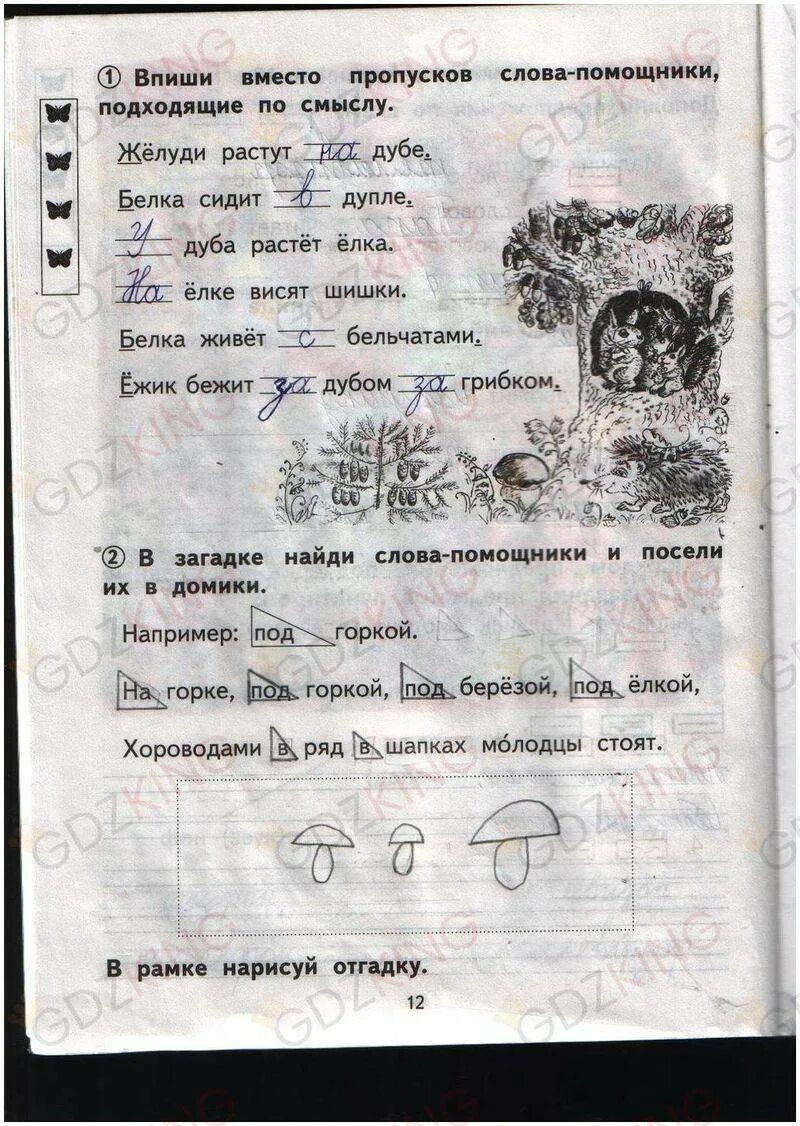 ① Впиши вместо пропусков слова-помощники,
подходящие по смыслу.
Жёлуди растут на дубе.
Белка сидит в дупле.
У дуба растёт ёлка.
На ёлке висят шишки.
Белка живёт с бельчатами.
Ёжик бежит за дубом за грибком.
② В загадке найди слова-помощники и посели
их в домики.
Например: под горкой.
На горке, под горкой, под берёзой, под ёлкой,
Хороводами в ряд в шапках мо́лодцы стоят.
В рамке нарисуй отгадку.
12
GDZKING